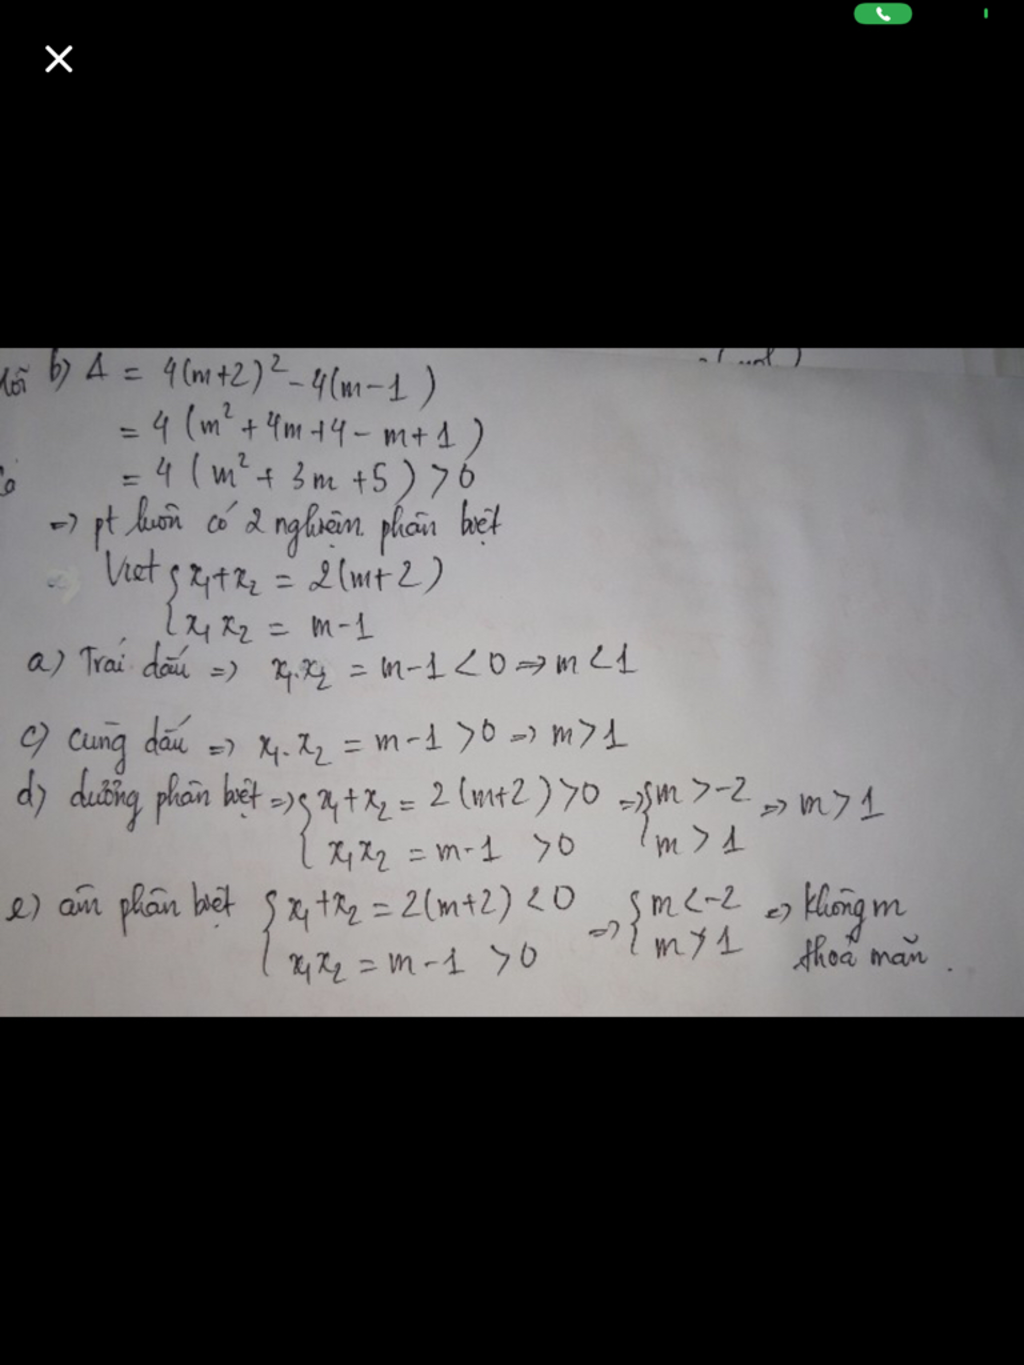 b) Δ = 4(m+2)² - 4(m-1)
= 4(m² + 4m + 4 - m + 1)
= 4(m² + 3m + 5) > 0
=> pt luôn có 2 nghiệm phân biệt
Viet { x₁+x₂ = 2(m+2)
x₁x₂ = m-1
a) Trái dấu => x₁.x₂ = m-1 < 0 => m < 1
c) cùng dấu => x₁.x₂ = m-1 > 0 => m > 1
d) dương phân biệt => { x₁+x₂ = 2(m+2) > 0 => { m > -2 => m > 1
x₁x₂ = m-1 > 0 m > 1
e) âm phân biệt { x₁+x₂ = 2(m+2) < 0 => { m < -2 => không m
x₁x₂ = m-1 > 0 m > 1 thoả mãn.